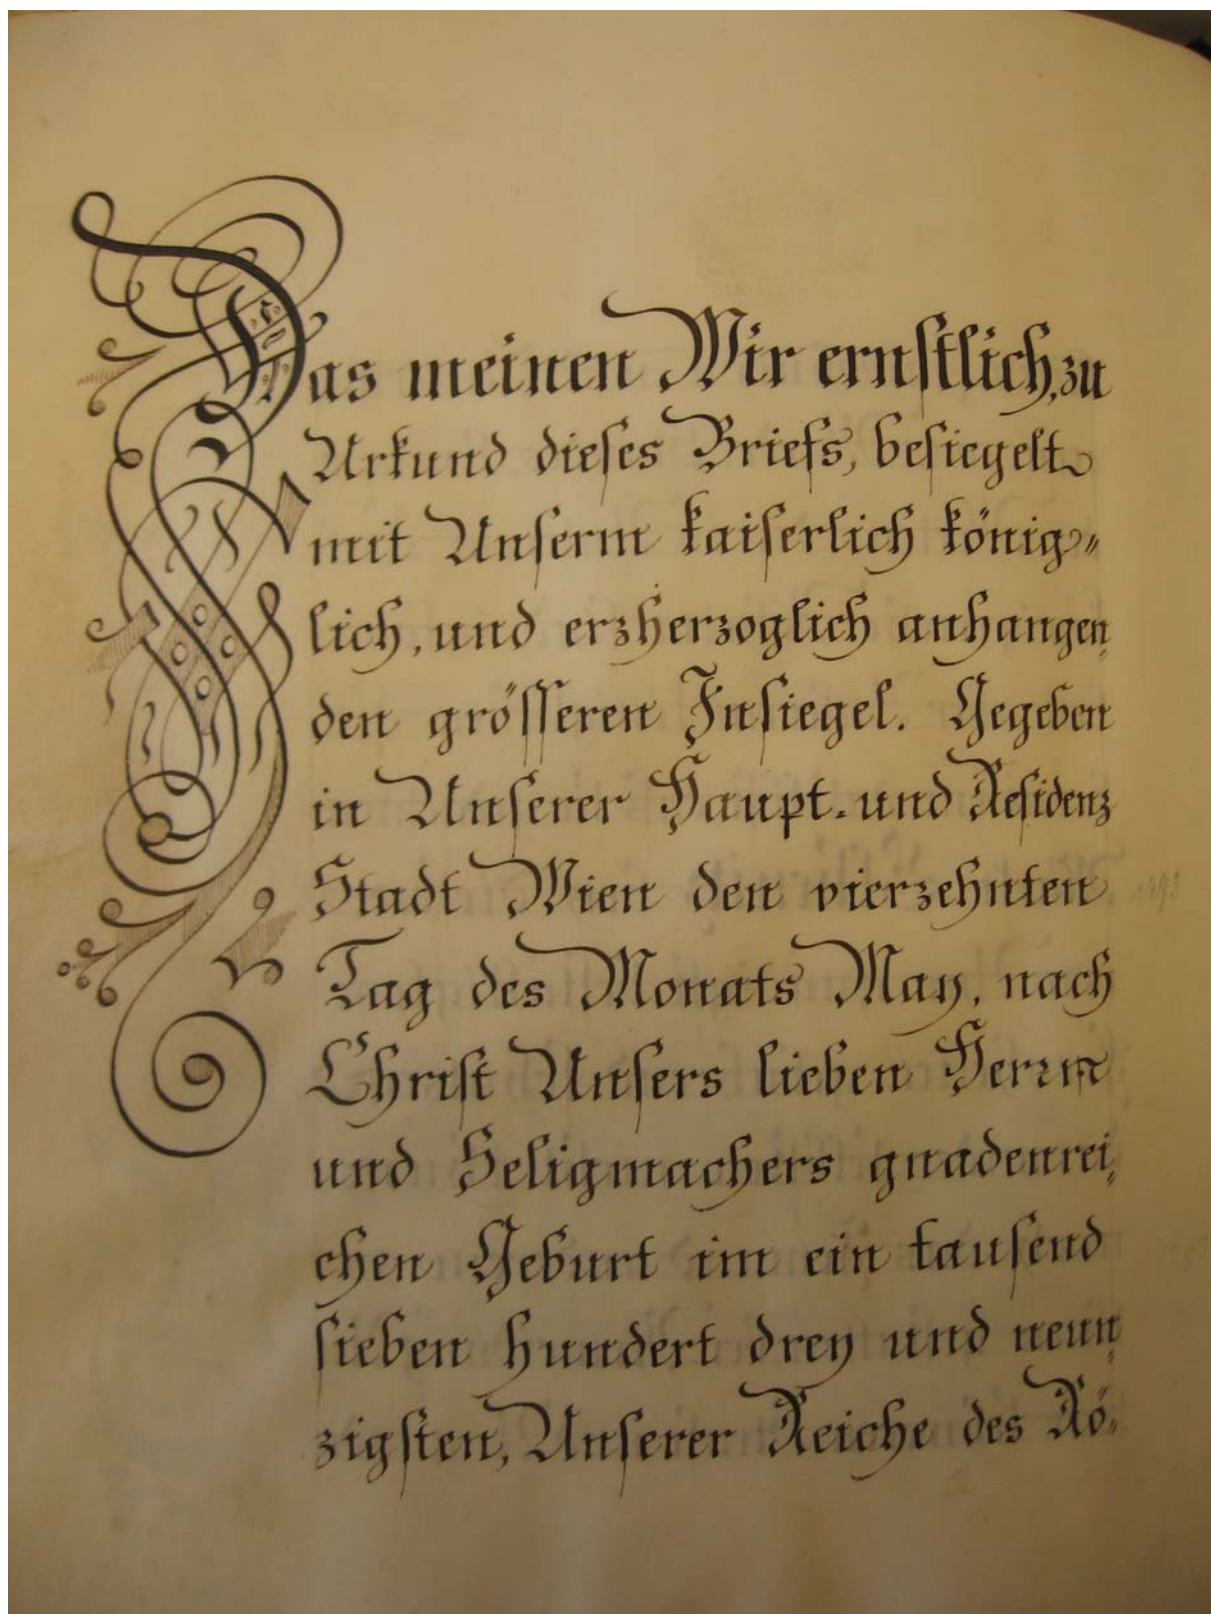 Das meinen Wir ernstlich, zu
Urkund dieses Briefs, besiegelt
mit Unserm kaiserlich könig-
lich, und erzherzoglich anhangen,
den grösseren Insiegel. Gegeben
in Unserer Haupt- und Residenz
Stadt Wien den vierzehnten
Tag des Monats May, nach
Christ Unsers lieben Herrn
und Seligmachers gnadenrei,
chen Geburt im ein tausend
sieben hundert drey und neun,
zigsten, Unserer Reiche des Rö,